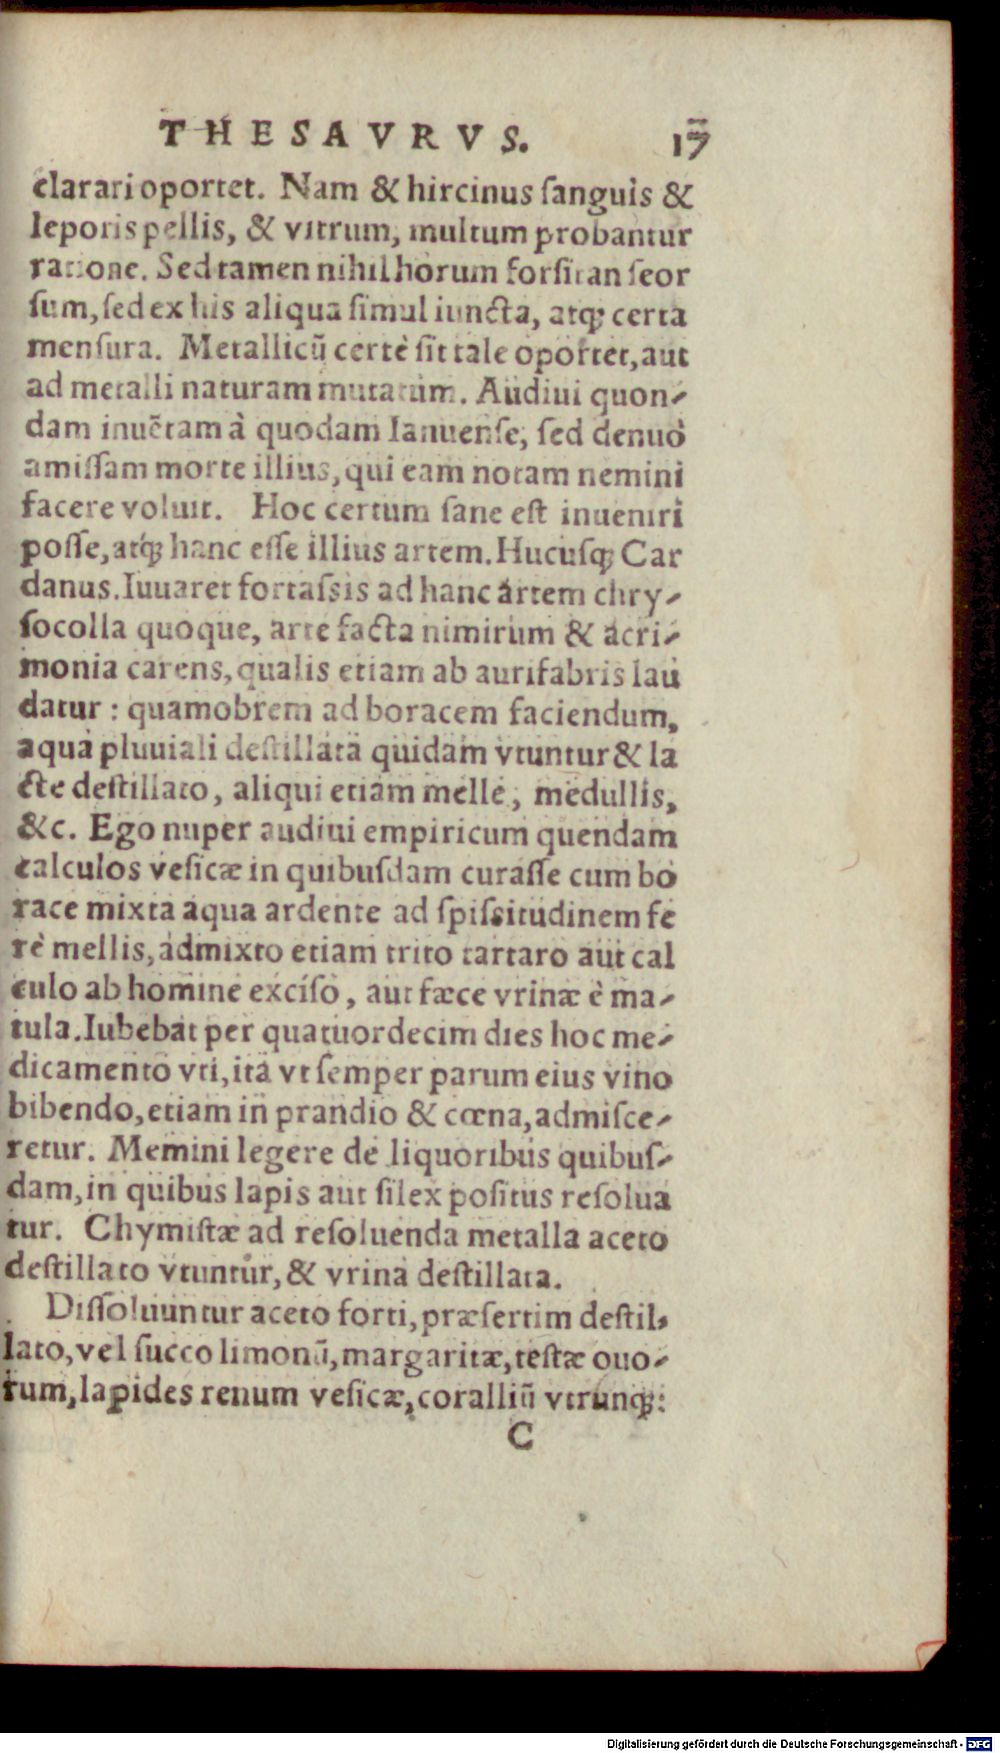 THESAVRVS. 17
clarari oportet. Nam & hircinus ſanguis &
leporis pellis, & vitrum, multum probantur
ratione. Sed tamen nihil horum forſitan ſeor
ſum, ſed ex his aliqua ſimul iuncta, atq; certa
menſura. Metallicũ certè ſit tale oportet, aut
ad metalli naturam mutatum. Audiui quon-
dam inuẽtam à quodam Ianuenſe, ſed denuò
amiſſam morte illius, qui eam notam nemini
facere voluit. Hoc certum ſane eſt inueniri
poſſe, atq; hanc eſſe illius artem. Hucuſq; Car
danus. Iuuaret fortaſsis ad hanc artem chry-
ſocolla quoque, arte facta nimirum & acri-
monia carens, qualis etiam ab aurifabris lau
datur : quamobrem ad boracem faciendum,
aqua pluuiali deſtillata quidam vtuntur & la
cte deſtillato, aliqui etiam melle, medullis,
&c. Ego nuper audiui empiricum quendam
calculos veſicæ in quibuſdam curaſſe cum bo
race mixta aqua ardente ad ſpiſsitudinem fe
rè mellis, admixto etiam trito tartaro aut cal
culo ab homine exciſo, aut fæce vrinæ è ma-
tula. Iubebat per quatuordecim dies hoc me-
dicamento vti, ita vt ſemper parum eius vino
bibendo, etiam in prandio & cœna, admiſce-
retur. Memini legere de liquoribus quibuſ-
dam, in quibus lapis aut ſilex poſitus reſolua
tur. Chymiſtæ ad reſoluenda metalla aceto
deſtillato vtuntur, & vrina deſtillata.
Diſſoluuntur aceto forti, præſertim deſtil-
lato, vel ſucco limonũ, margaritæ, teſtæ ouo-
rum, lapides renum veſicæ, coralliũ vtrunq;:
C
Digitalisierung gefördert durch die Deutsche Forschungsgemeinschaft - DFG